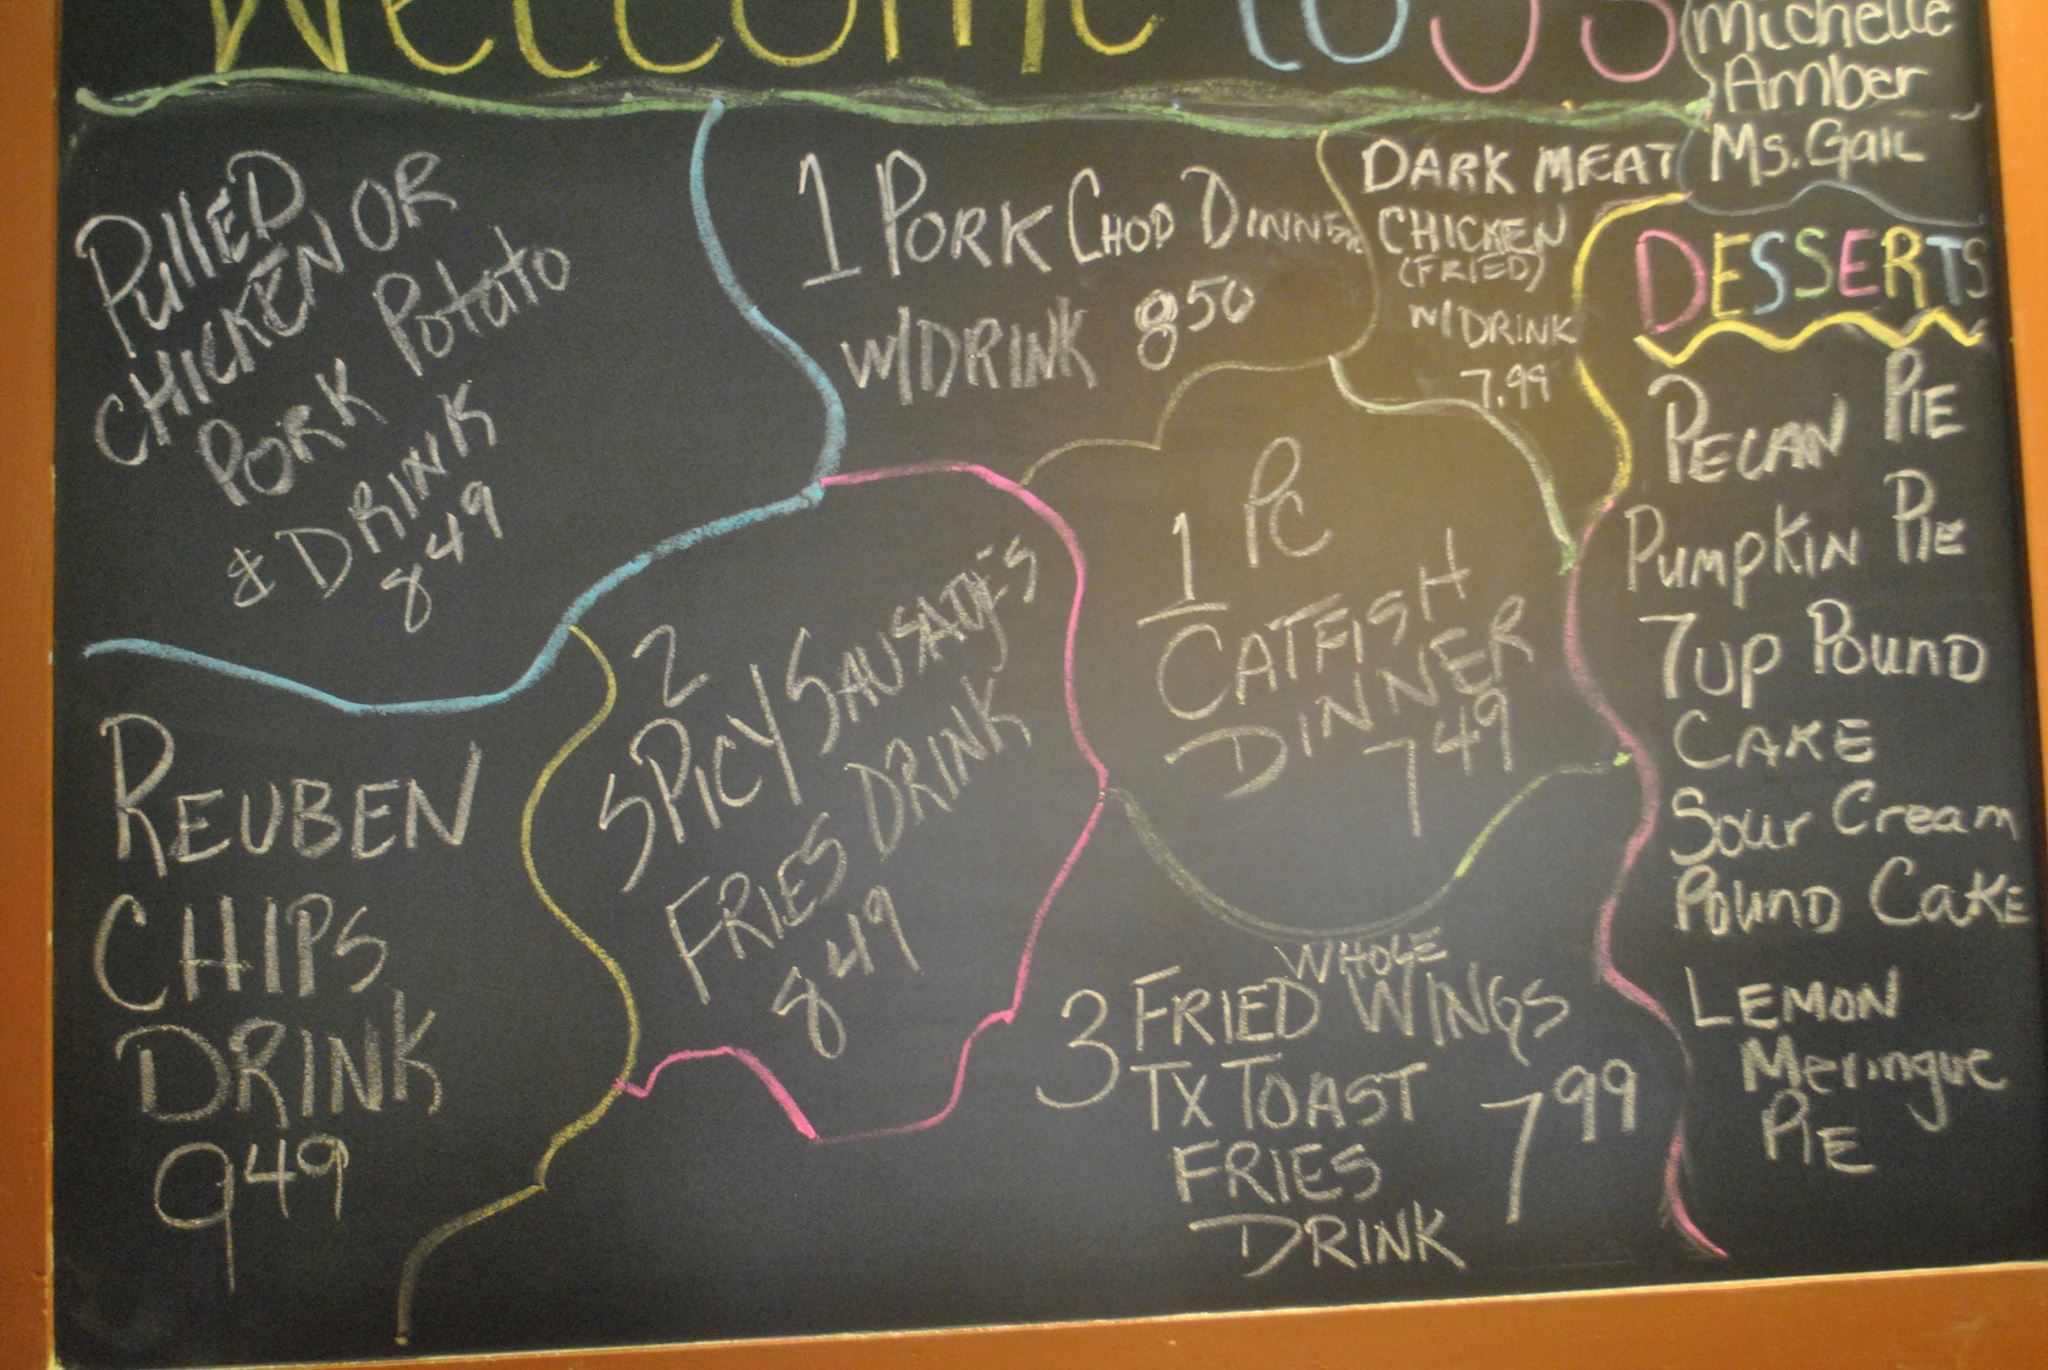 Welcome to J's
Michelle
Amber
Ms. Gail
PullED
CHICKEN OR
PORK Potato
& DRINK
8 49
1 PORK CHOP DINNER
W/DRINK 8 50
DARK MEAT
CHICKEN
(FRIED)
W/DRINK
7.99
DESSERTS
PECAN PIE
PUMPKIN PIE
7UP POUND
CAKE
Sour Cream
POUND CAKE
LEMON
Meringue
PIE
1 PC
CATFISH
DINNER
7 49
2
SPICY SAUSAGES
FRIES DRINK
8 49
REUBEN
CHIPS
DRINK
9 49
WHOLE
3 FRIED WINGS
TX TOAST
FRIES
DRINK
7 99